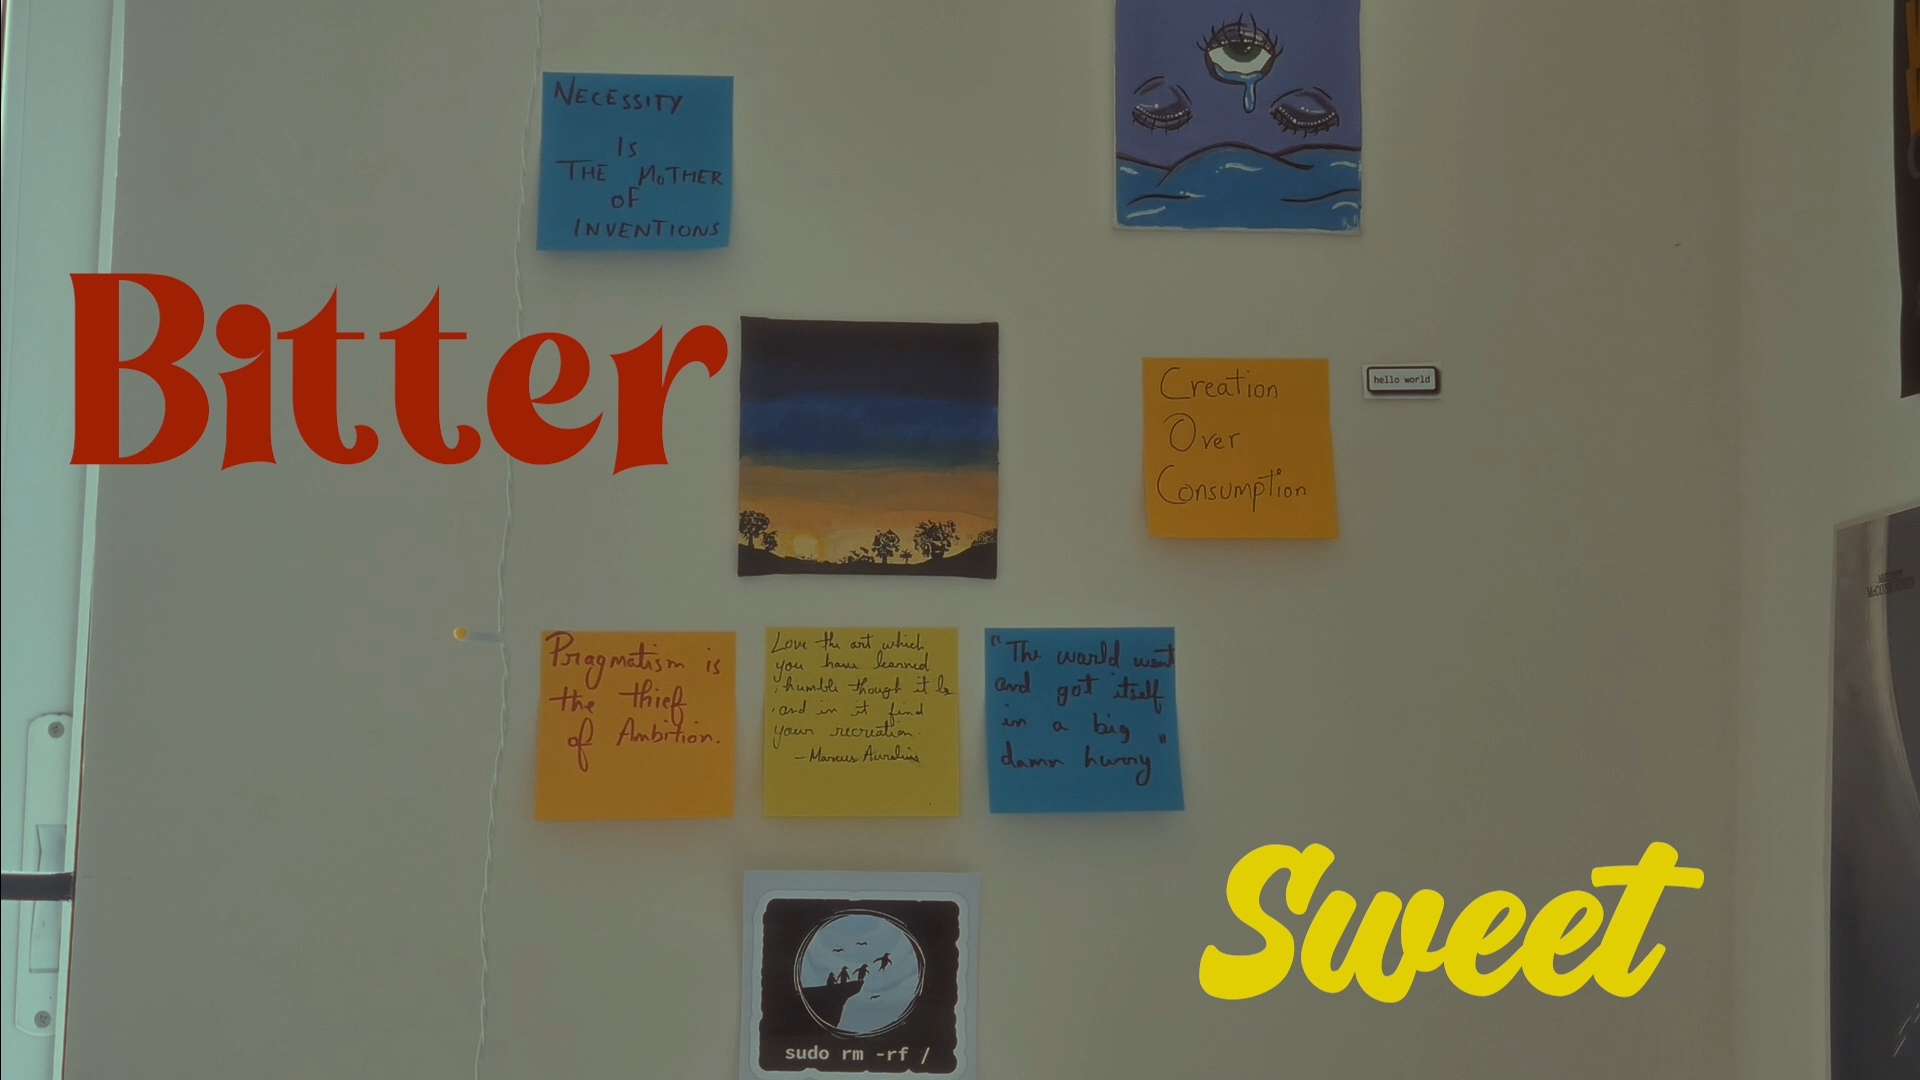 NECESSITY
IS
THE MOTHER
OF
INVENTIONS
Bitter
Creation
Over
Consumption
hello world
Pragmatism is
the thief
of Ambition.
Love the art which
you have learned
, humble though it be
, and in it find
your recreation.
- Marcus Aurelius
"The world went
and got itself
in a big
damn hurry"
Sweet
sudo rm -rf /